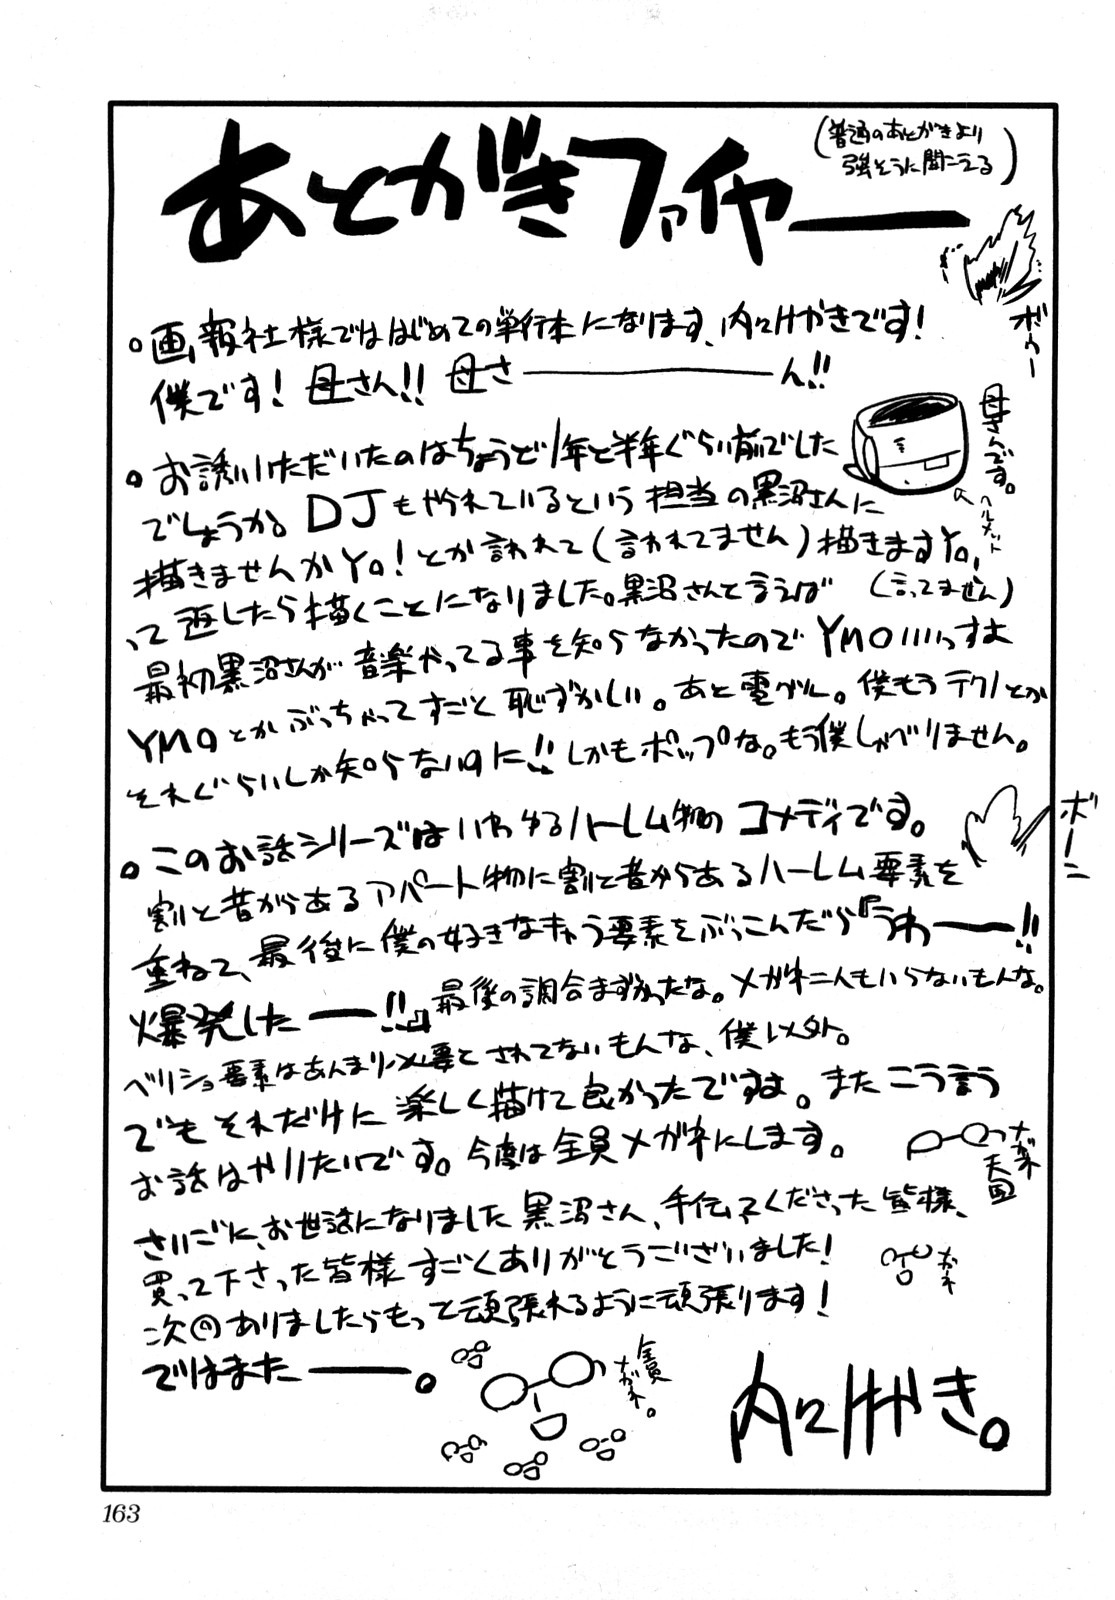 あとがきファイヤー
(普通のあとがきより
強そうに聞こえる)
ボゥー
。画報社様でははじめての単行本になります、内々けやきです!
僕です! 母さん!! 母さ――――ん!!
母さんです。
ヘルメット
。お誘いいただいたのはちょうど1年と半年ぐらい前でした
でしょうか。DJもやられているという担当の黒沼さんに
描きませんかYo!とか言われて(言われてません)描きますYo,
って返したら描くことになりました。黒沼さんと言えば (言ってません)
最初黒沼さんが音楽やってる事を知らなかったのでYMOいいっすよ
YMOとかぶっちゃってすごく恥ずかしい。あと電グル。僕もうテクノとか
それぐらいしか知らないのに!!しかもポップな。もう僕しゃべりません。
。このお話シリーズはいわゆるハーレム物のコメディです。
ボーン
割と昔からあるアパート物に割と昔からあるハーレム要素を
重ねて、最後に僕の好きなキャラ要素をぶっこんだら『うわーー!!
爆発したーー!!』最後の調合まずかったな。メガネ二人もいらないもんな。
ベリショ要素はあんまり必要とされてないもんな、僕以外。
でもそれだけに楽しく描けて良かったですよ。またこう言う
お話はやりたいです。今度は全員メガネにします。
メガネ
天国
さいごに、お世話になりました黒沼さん、手伝ってくださった皆様、
買って下さった皆様すごくありがとうございました!
次回ありましたらもって頑張れるように頑張ります!
ではまたーー。
全員
メガネ。
内々けやき。
163